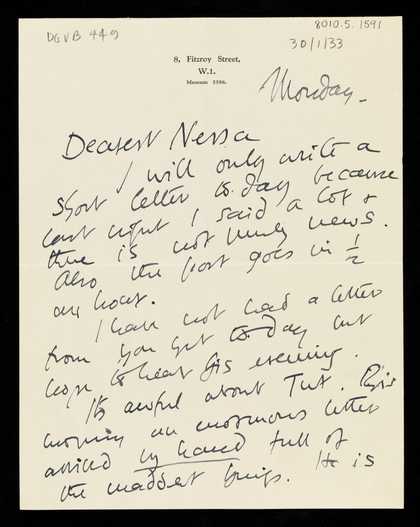 DGVB 449
8010.5.1591
30/1/33
8, Fitzroy Street,
W.1.
Museum
Monday.
Dearest Nessa
I will only write a
short letter to-day because
last night I said a lot &
there is not much news.
Also the post goes in ½
an hour.
I have not had a letter
from you yet to-day but
hope to hear this evening.
It's awful about Tut. This
morning an enormous letter
arrived by hand full of
the maddest things. He is